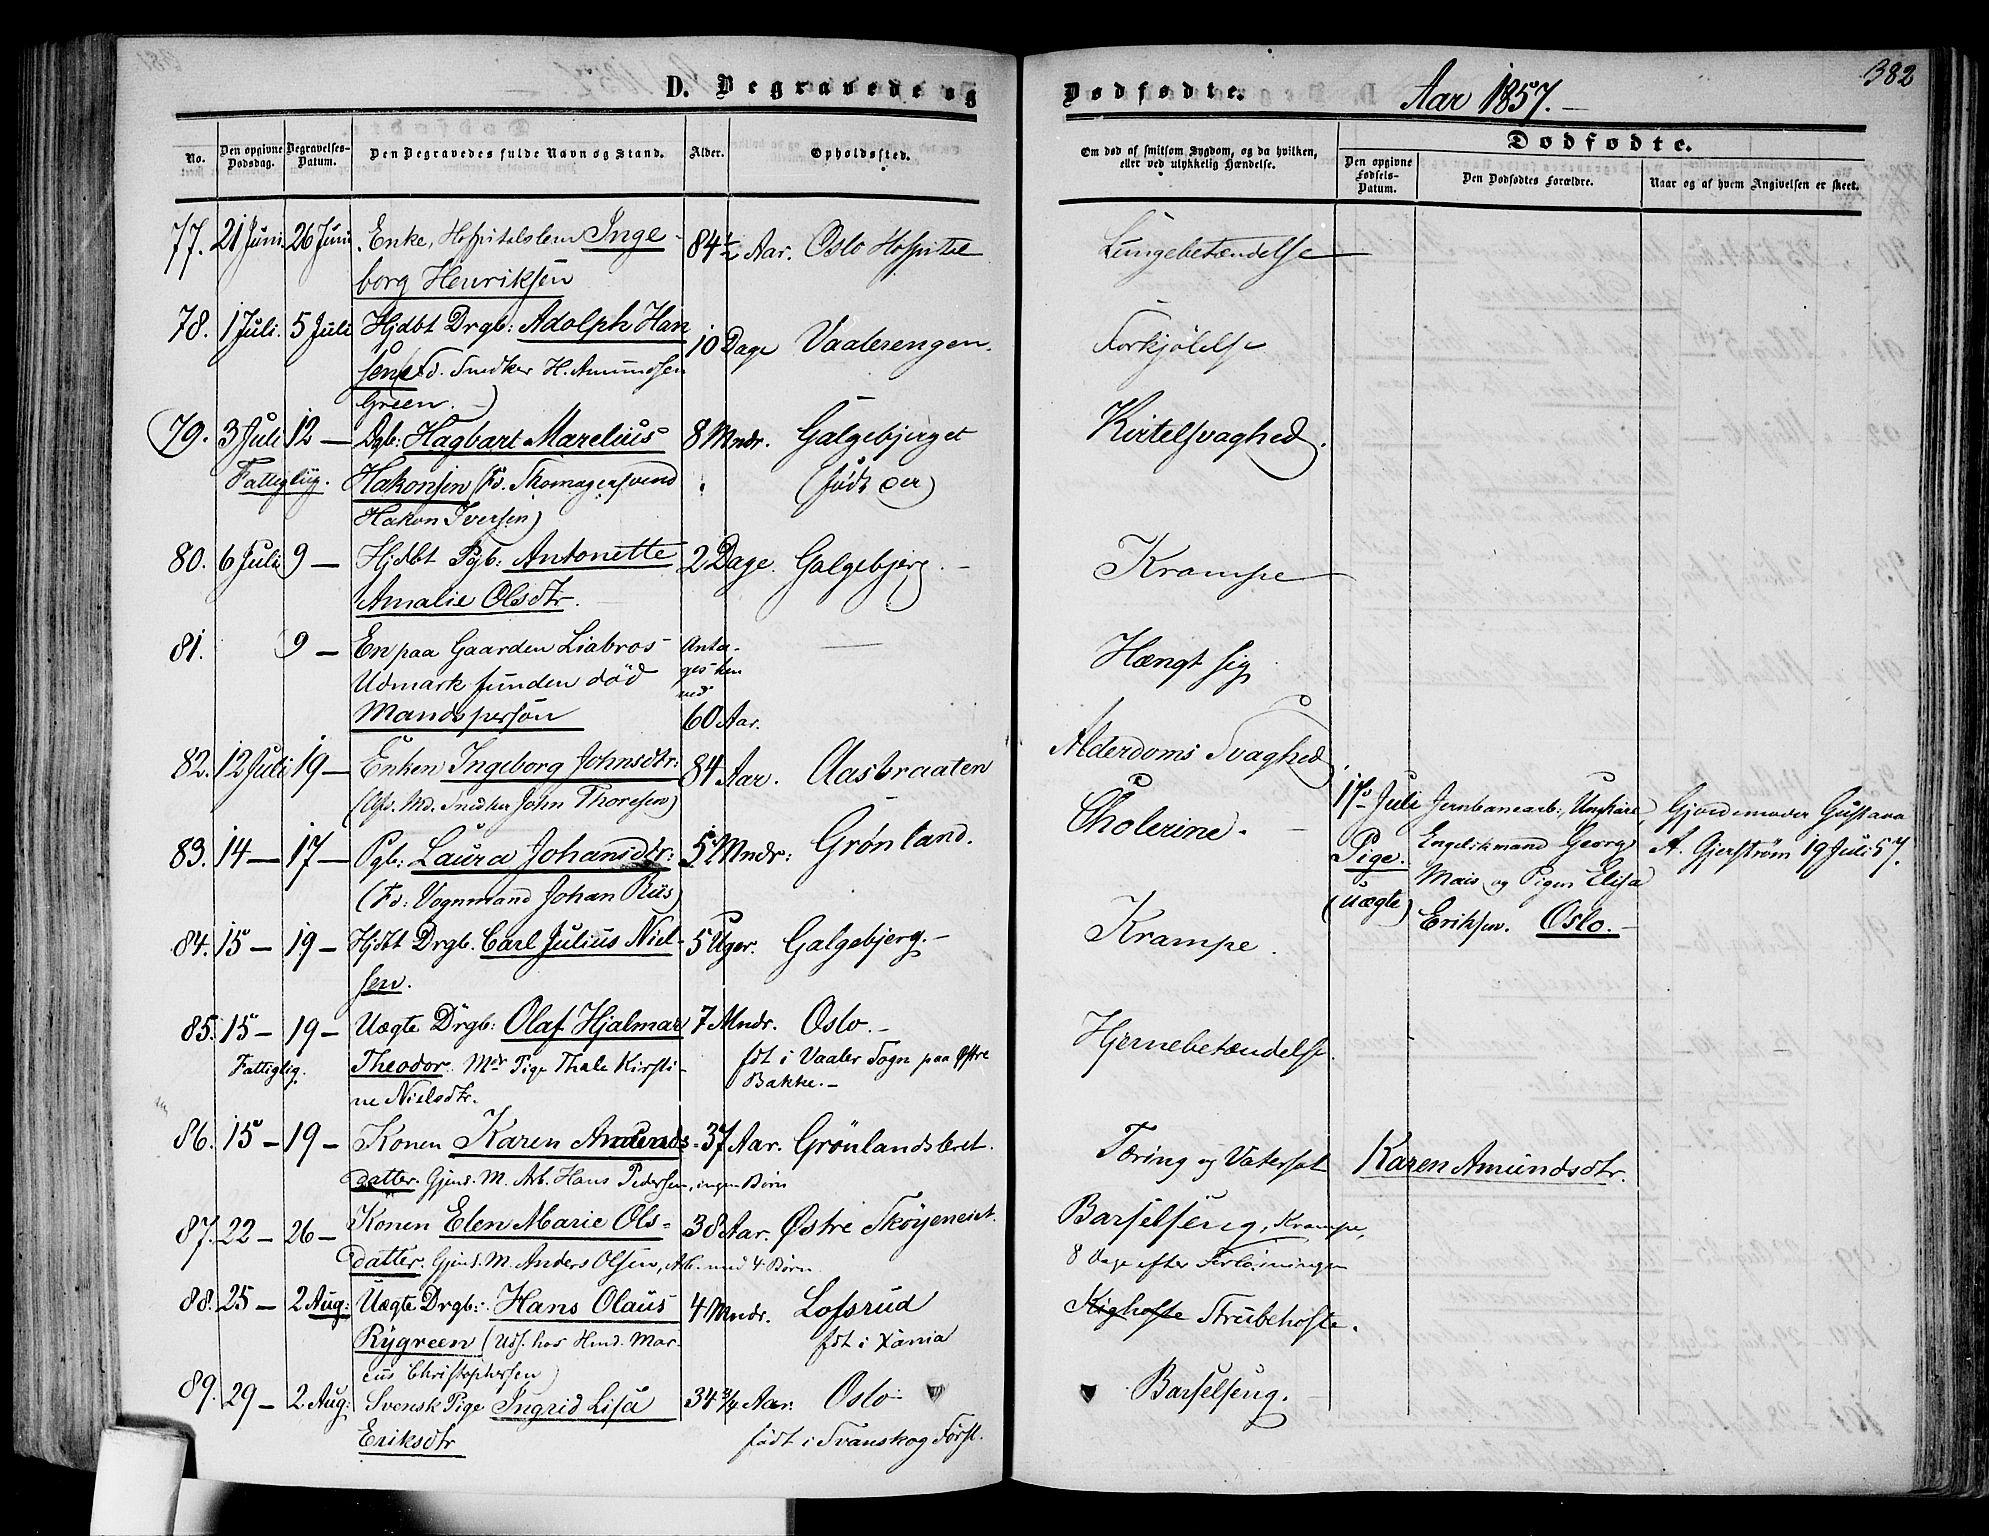 D. Begravede og
No.
Den opgivne Dødsdag.
Begravelses-Datum.
Den Begravedes fulde Navn og Stand.
Alder.
Opholdssted.
77. 21 Juni. 26 Juni. Enke, Hospitalslem Inge- 84½ Aar. Oslo Hospital
borg Henriksen
78. 1 Juli. 5 Juli Hjdbt Drgb: Adolph Han
10 Dage Vaalerengen.
sen (Fd. Snedker H. Amundsen
Green.)
79. 3 Juli 12 — Dgb: Hagbart Marelius 8 Mndr. Galgebjerget
Fattiglig. Hakonsen (Fd. Skomagersvend (født der)
Hakon Iversen)
80. 6 Juli 9 — Hjdbt Pgb: Antonette 2 Dage. Galgebjerg. —
Amalie Olsdtr.
81. 9 — En paa Gaarden Liabros Anta- —
Udmark funden død ges hen
ved
Mandsperson 60 Aar.
82. 12 Juli 19 — Enken Ingeborg Johnsdtr: 84 Aar. Aasbraaten
(Afd. Md. Snedker John Thoresen)
83. 14 — 17 — Pgb: Laura Johansdtr: 5 Mndr: Grønland.
(Fd: Vognmand Johan Riis)
84. 15 — 19 — Hjdbt Drgb. Carl Julius Niel- 5 Uger. Galgebjerg. —
sen.
85. 15 — 19 — Uægte Drgb: Olaf Hjalmar 7 Mndr. Oslo. —
Fattiglig. Theodor. Mdr Pige Thale Kirsti- fdt i Vaaler Sogn paa Østre
ne Nielsdtr. Bakke. —
86. 15 — 19 — Konen Karen Amunds- 37 Aar. Grønlandsleret.
datter. Gjens. M. Arb. Hans Pedersen, ingen Børn
87. 22 — 26 — Konen Elen Marie Ols- 38 Aar. Østre Skøyeneiet.
datter. Gjens. M. Anders Olsen, Arb. med 4 Børn
88. 25 — 2 Aug: Uægte Drgb: Hans Olaus 4 Mndr. Lofsrud
Rygreen (Uds. hos Hmd. Mar- fdt i Xania
cus Christophersen)
89. 29 — 2 Aug: Svensk Pige Ingrid Lisa 34¾ Aar. Oslo.
Eriksdtr født i Svanskog Forsl.
Dødfødte.
Aar 1857. —
382
Om død af smitsom Sygdom, og da hvilken,
eller ved ulykkelig Hændelse.
Dødfødte.
Den opgivne Fødsels-Datum.
Den Dødfødtes Forældre.
Naar og af hvem Angivelsen er skeet.
Lungebetændelse
Forkjølelse
Kirtelsvaghed.
Krampe
Hængt sig
Alderdoms Svaghed.
Cholerine. —
17 Juli Jernbanearb:, Ungkarl, Gjordemoder Gustava
Pige. Engelskmand Georg A. Gjerstrøm 19 Juli 57.
Mais og Pigen Elisa
(uægte) Eriksen. Oslo. —
Krampe.
Hjernebetændelse.
Tæring og Vatersot Karen Amundsdtr.
Barselseng, Krampe,
8 Dage efter Forløsningen
Kighoste Strubehoste.
Barselseng.